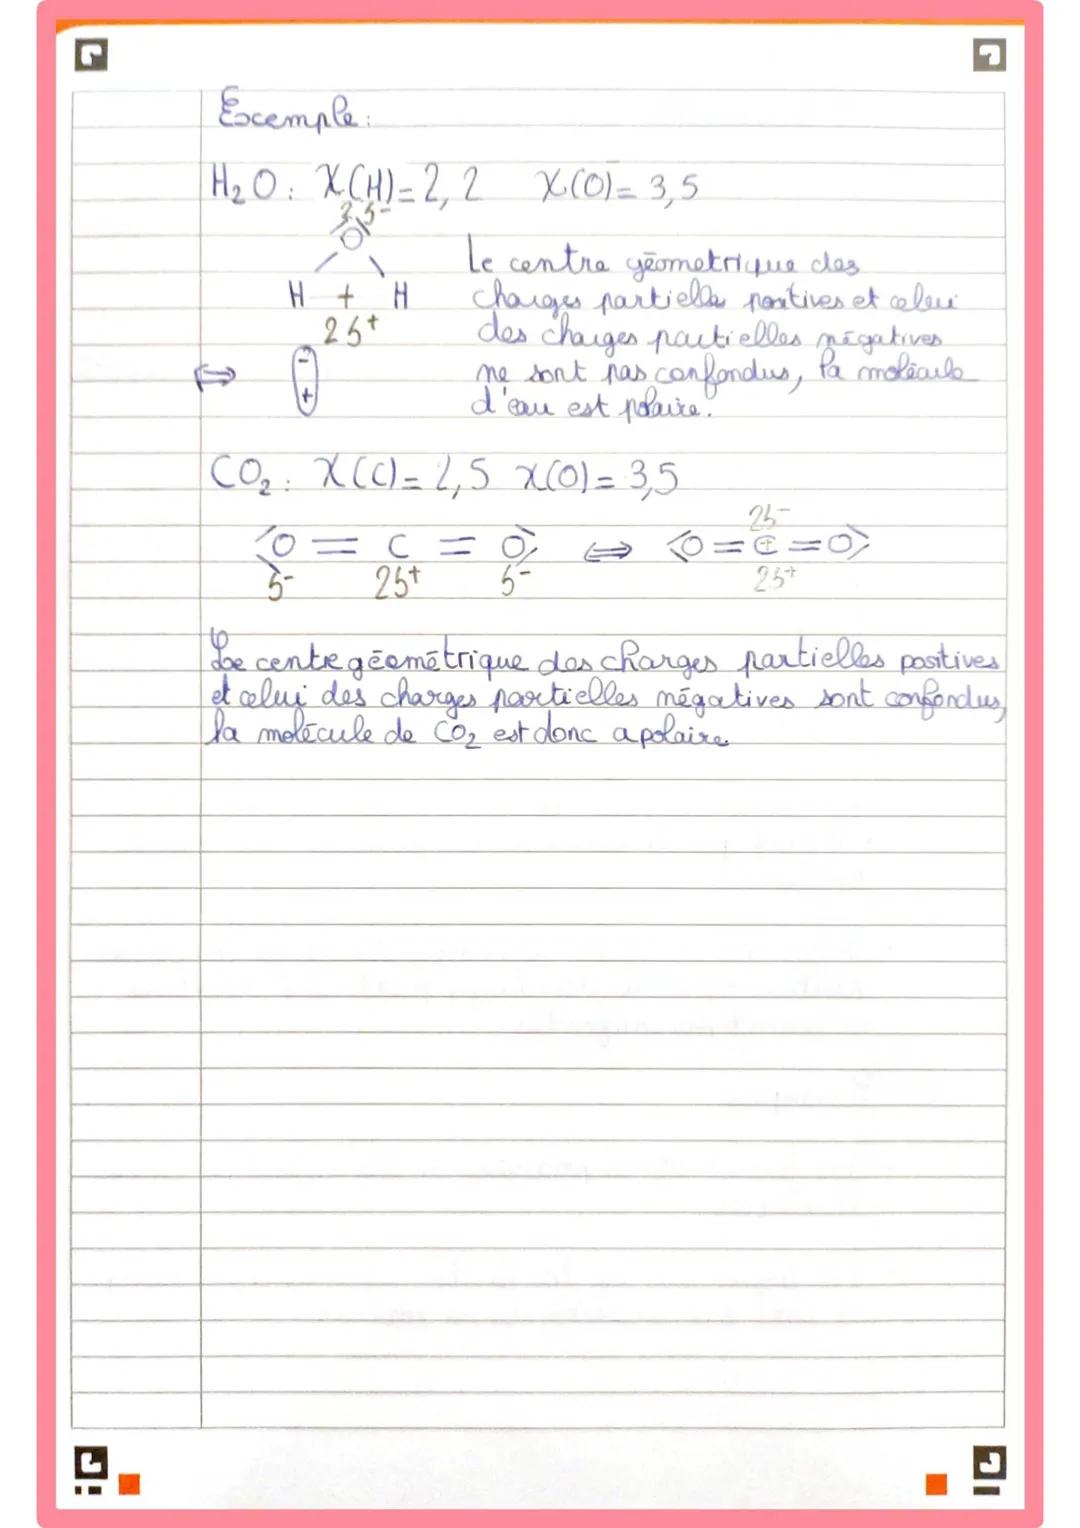 Excemple:
H₂O: χ(H)=2,2 χ(O)=3,5
2δ-
O
H + H
2δ+
Le centre géometrique des
charges partielle positives et celui
des charges partielles négatives
ne sont pas confondus, la molécule
d'eau est polaire.
⇔ - +
CO₂: χ(C)=2,5 χ(O)=3,5
2δ-
O = C = O ⇔ O = C = O
δ- 2δ+ δ- 2δ+
Le centre géométrique des charges partielles positives
et celui des charges partielles négatives sont confondus,
la molécule de CO₂ est donc apolaire.